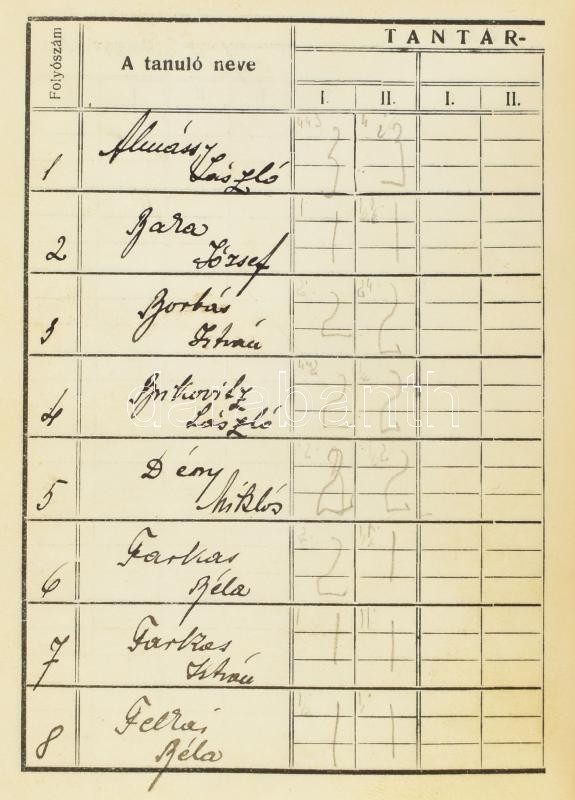 Folyószám
A tanuló neve
TANTÁR-
I. II. I. II.
1 Almássy
László 3 3
2 Bara
József 1 1
3 Borbás
István 2 2
4 Brikovitz
László 2 2
5 Dény
Miklós 2 2
6 Farkas
Béla 2 1
7 Farkas
István 1 1
8
Béla 1 1
darabanth.com